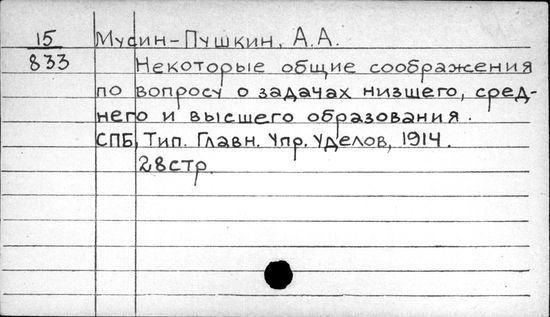 15 Мусин-Пушкин, А.А.
833 Некоторые общие соображения
по вопросу о задачах низшего, сред-
него и высшего образования.
СПБ, Тип. Главн. Упр. Уделов, 1914.
28стр.